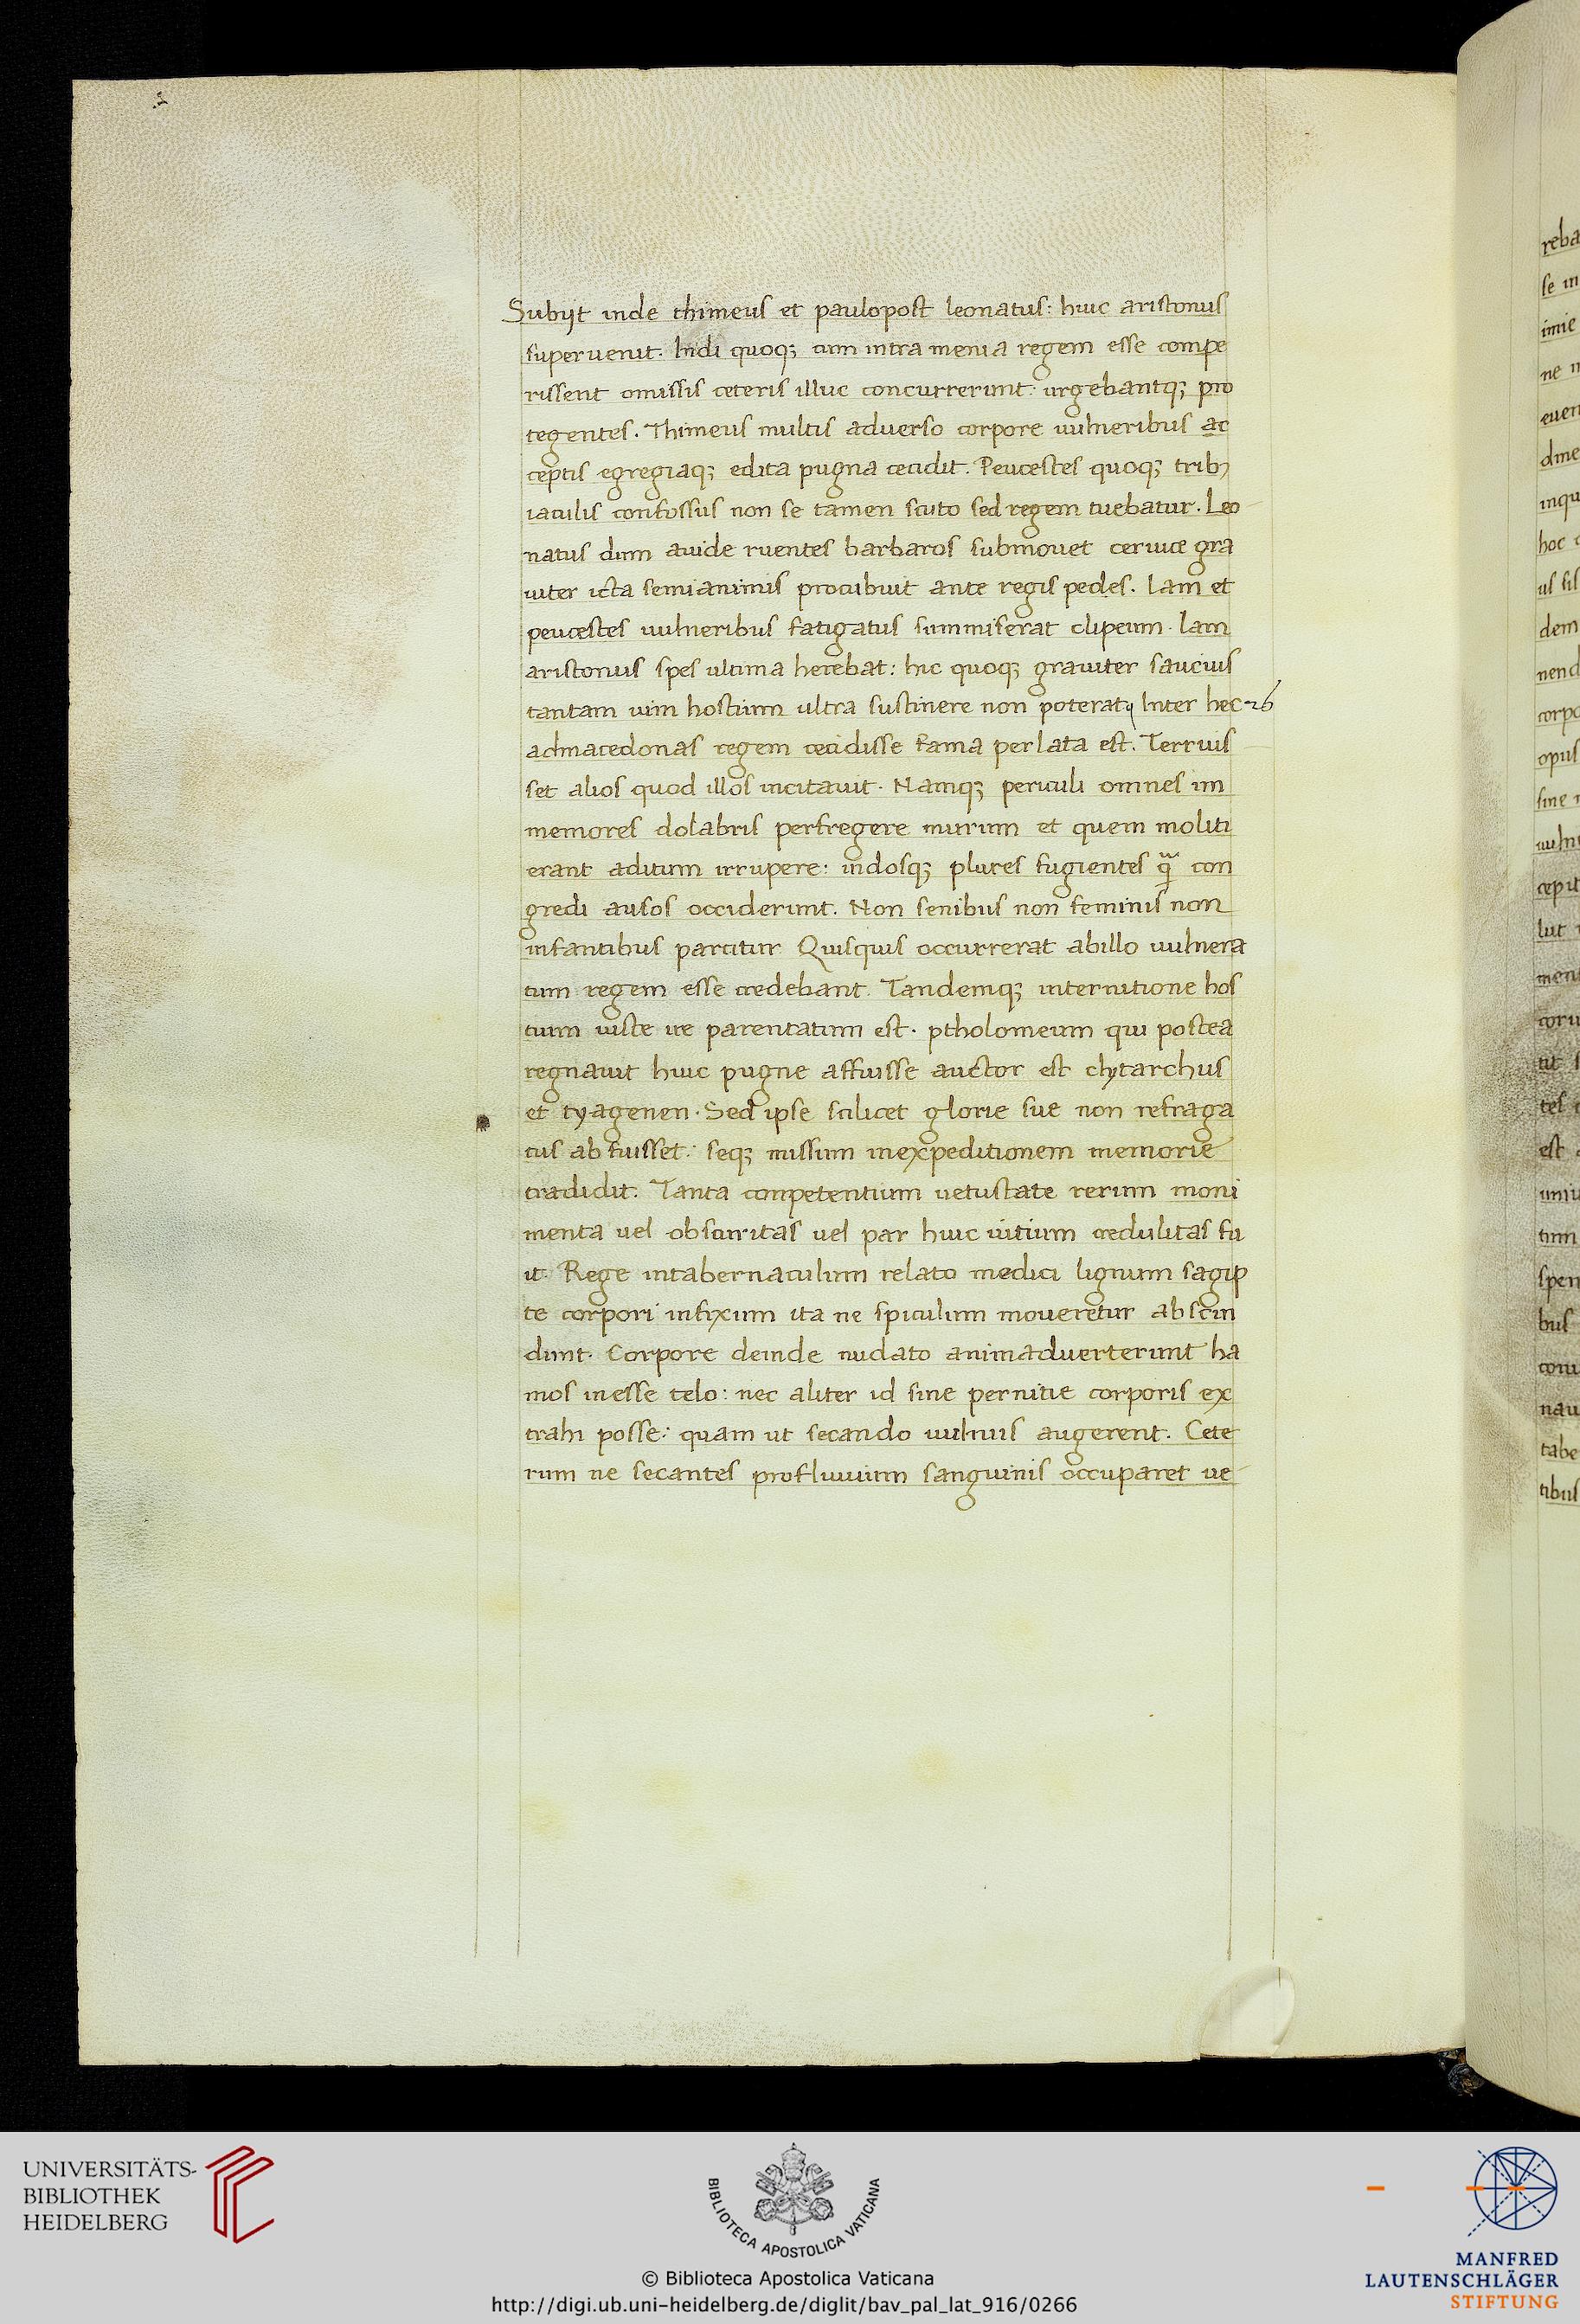 Subijt inde thimeus et paulopost leonatus: huic aristonus
superuenit. Indi quoq; cum intra menia regem esse compe
rissent omissis ceteris illuc concurrerunt: urgebantq; pro
tegentes. Thimeus multis aduerso corpore uulneribus ac
ceptis egregiaq; edita pugna cecidit. Peucestes quoq; trib;
iaculis confossus non se tamen scuto sed regem tuebatur. Leo
natus dum auide ruentes barbaros submouet ceruice gra
uiter icta semianimis procubuit ante regis pedes. Iam et
peucestes uulneribus fatigatus summiserat clipeum. Iam
aristonus spes ultima herebat: hic quoq; grauiter saucius
tantam uim hostium ultra sustinere non poterat Inter hec
admacedonas regem cecidisse fama perlata est. Terruis
set alios quod illos incitauit. Namq; periculi omnes im
memores dolabris perfregere murum et quem moliti
erant aditum irrupere: indosq; plures fugientes q̃ con
gredi ausos occiderunt. Non senibus non feminis non
infantibus parcitur Quisquis occurrerat abillo uulnera
tum regem esse credebant. Tandemq; internitione hos
tium iuste ire parentatum est. ptholomeum qui postea
regnauit huic pugne affuisse auctor est clytarchus
et tyagenen. Sed ipse scilicet glorie sue non refraga
tus abfuisset: seq; missum inexpeditionem memorie
tradidit. Tanta competentium uetustate rerum moni
menta uel obscuritas uel par huic uitium credulitas fu
it. Rege intabernaculum relato medici lignum sagip
te corpori infixum ita ne spiculum moueretur abscin
dunt. Corpore deinde nudato animaduerterunt ha
mos inesse telo: nec aliter id sine pernitie corporis ex
trahi posse: quam ut secando uulnus augerent. Cete
rum ne secantes profluuium sanguinis occuparet ue
reba
se in
imie
ne
euen
dme
inqu
hoc
us
dem
nend
corpo
opus
sine
uuln
cepit
lut
men
coru
ut
tes
est
tum
spen
bus
nau
tabe
tibus
UNIVERSITÄTS-
BIBLIOTHEK
HEIDELBERG
BIBLIOTECA APOSTOLICA VATICANA
© Biblioteca Apostolica Vaticana
http://digi.ub.uni-heidelberg.de/diglit/bav_pal_lat_916/0266
MANFRED
LAUTENSCHLÄGER
STIFTUNG